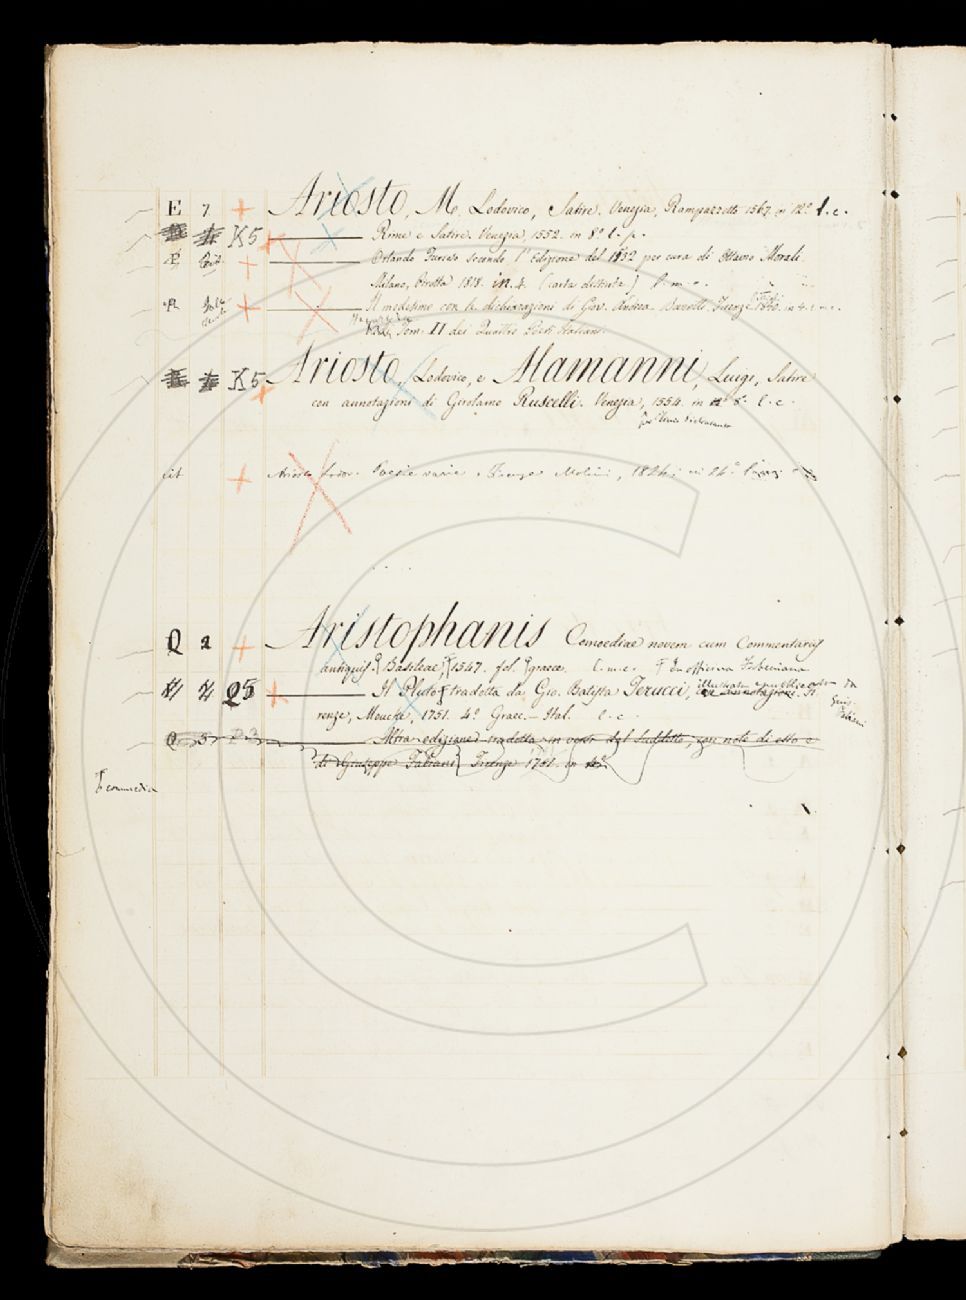 E 7 + Ariosto, M. Lodovico, Satire. Venezia, Rampazzetto 1567. in 12.º l.c.
K5 Rime e Satire. Venezia, 1552. in 8.º l.p.
Orlando Furioso secondo l'Edizione del 1532 per cura di Ottavio Morali.
Milano, Pirotta 1818. in 4. (carta distinta)
Il medesimo con le dichiarazioni di Giov. Andrea Barotti. Firenze in 4.
Tom. II dei Quattro Poeti Italiani.
K5 Ariosto, Lodovico, e Alamanni, Luigi, Satire
con annotazioni di Girolamo Ruscelli. Venezia, 1554. in 8.º l.c.
per Plinio Pietrasanta
Cit + Ariosto Lodov. Poesie varie. Firenze Molini, 1824. in 24.º
Q 2 + Aristophanis Comoediae novem cum Commentariis
antiquis. Basileae, 1547. fol. graece. l.m.c. In officina Frobeniana
Q5 + Il Pluto tradotta da Gio. Batista Terucci, illustrata e pubblicata da
Gius. Fabiani
Fi-
renze, Moucke, 1751. 4.º Graec.-Ital. l.c.
Q 5 Altra edizione tradotta in versi dal suddetto, con note di esso e
di Giuseppe Fabiani Firenze 1751. in 4.º
commedia